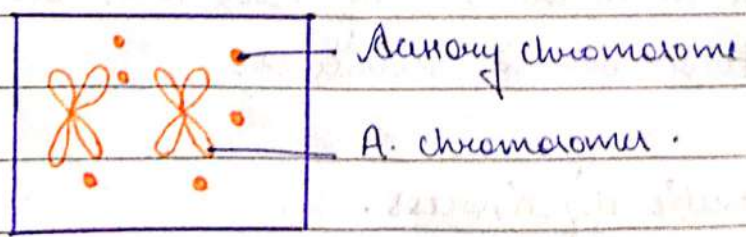 Accessory chromosome
A. chromosomes.